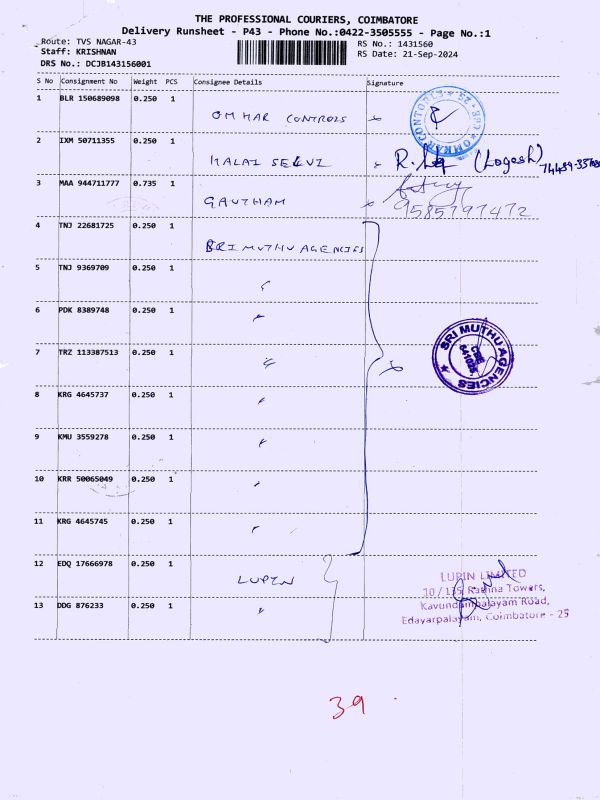 THE PROFESSIONAL COURIERS, COIMBATORE
Delivery Runsheet - P43 - Phone No.:0422-3505555 - Page No.:1
Route: TVS NAGAR-43
Staff: KRISHNAN
DRS No.: DCJB143156001
RS No.: 1431560
RS Date: 21-Sep-2024
S No Consignment No Weight PCS Consignee Details Signature
1 BLR 150689098 0.250 1 OMHAR CONTROLS
2 IXM 50711355 0.250 1 MALAI SELVI R. (Logesh)
3 MAA 944711777 0.735 1 GAUTHAM 9585797472
4 TNJ 22681725 0.250 1 SRI MUTHU AGENCIES
5 TNJ 9369709 0.250 1 "
6 PDK 8389748 0.250 1 "
7 TRZ 113387513 0.250 1 "
SRI MUTHU AGENCIES
CBE
641025
8 KRG 4645737 0.250 1 "
9 KMU 3559278 0.250 1 "
10 KRR 50065049 0.250 1 "
11 KRG 4645745 0.250 1 "
12 EDQ 17666978 0.250 1 LUPIN
13 DDG 876233 0.250 1 "
LUPIN LIMITED
10/135, Rathna Towers,
Kavundampalayam Road,
Edayarpalayam, Coimbatore - 25
39